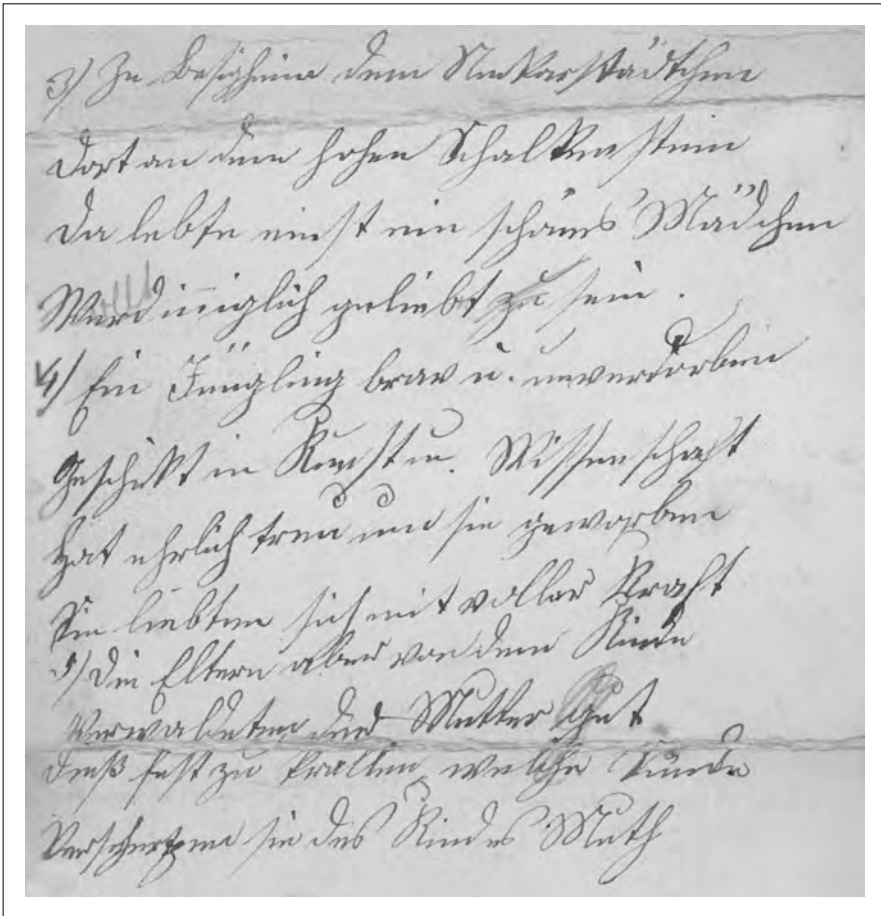 3) Zu Besigheim dem Nekarstädtchen
Dort an dem hohen Schalkenstein
Da lebte einst ein schönes Mädchen
Werd inniglich geliebt zu sein.
4) Ein Jüngling brav u. unverdorben
Geschikt in Kunst u. Wissenschaft
Hat ehrlich treu um sie geworben
Sie liebten sich mit voller Kraft
5) Die Eltern aber von dem Kinde
Verwaldeten das Mutter Gut
Dieß fest zu krallen welche Sünde
Verscherzen sie des Kindes Muth